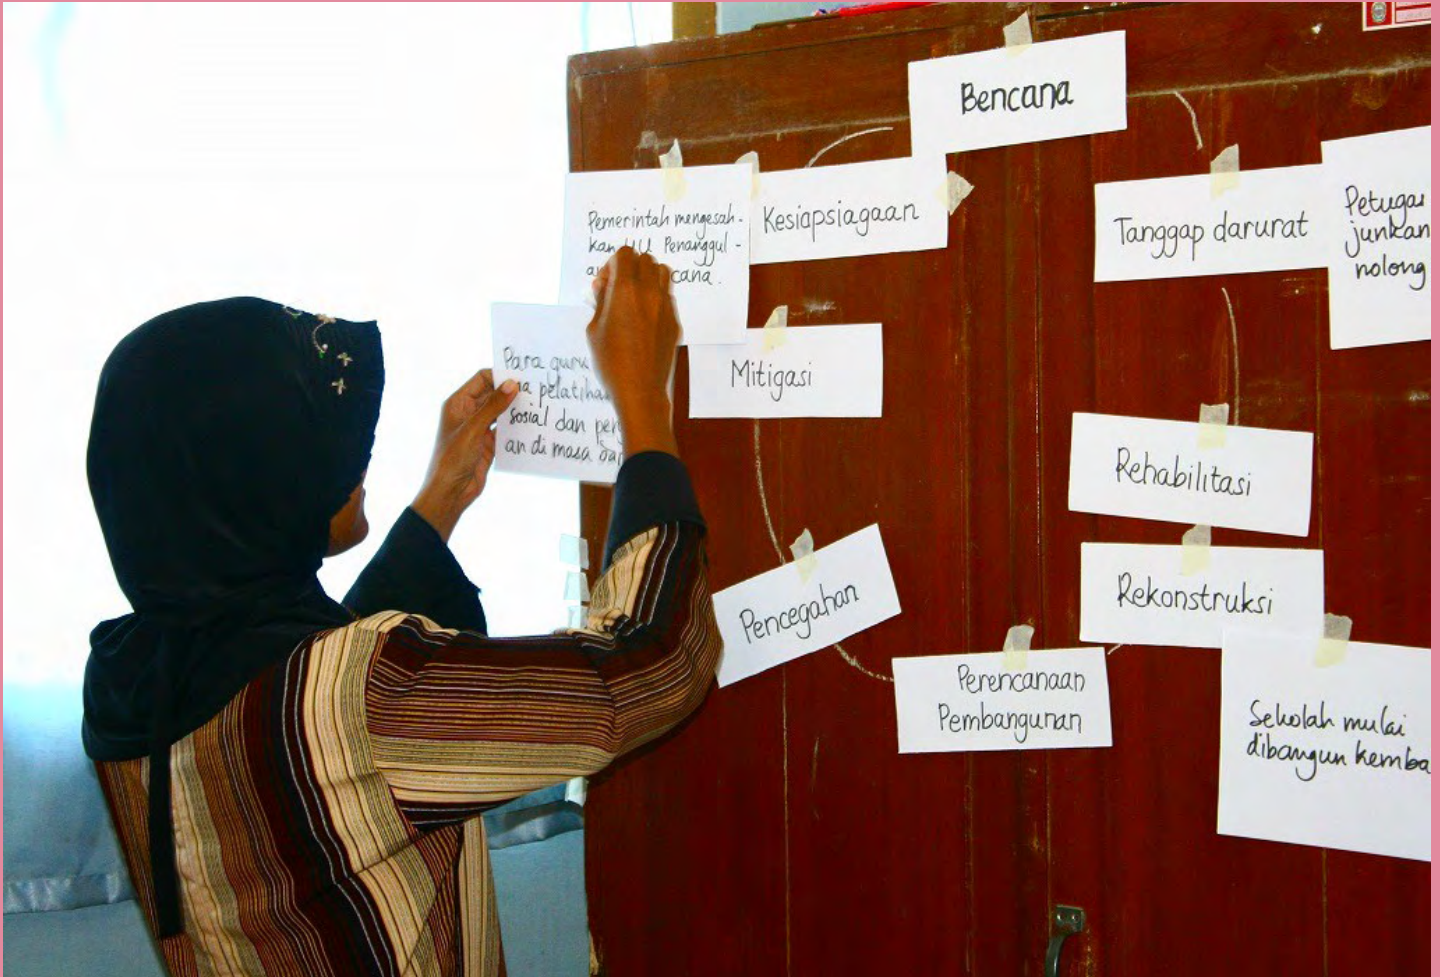 Bencana
Pemerintah mengesah-
kan UU Penanggul-
cana.
Kesiapsiagaan
Tanggap darurat
Petugas
junkan
nolong
Para guru
pelatihan
sosial dan
an di masa
Mitigasi
Rehabilitasi
Pencegahan
Rekonstruksi
Perencanaan
Pembangunan
Sekolah mulai
dibangun kemba